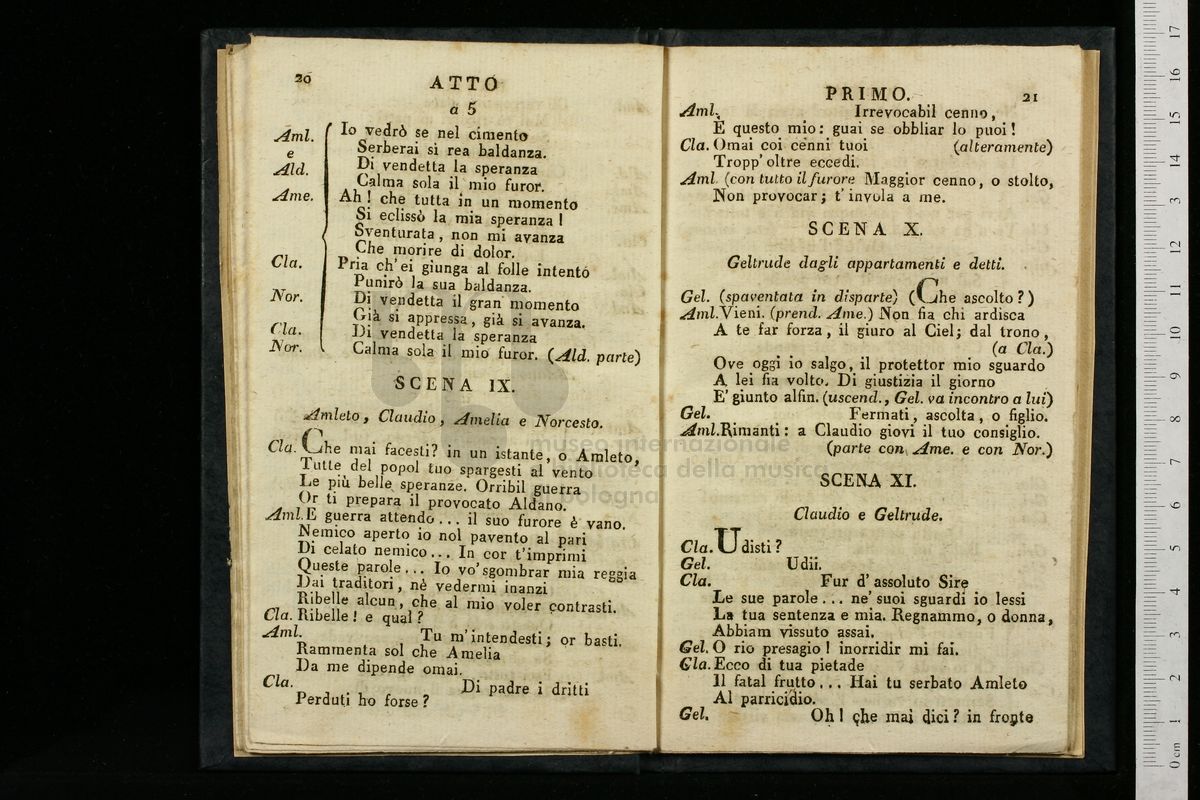 20
ATTO
a 5
Aml. Io vedrò se nel cimento
e Serberai sì rea baldanza.
Ald. Di vendetta la speranza
Calma sola il mio furor.
Ame. Ah! che tutta in un momento
Si eclissò la mia speranza!
Sventurata, non mi avanza
Che morire di dolor.
Cla. Pria ch'ei giunga al folle intento
Punirò la sua baldanza.
Nor. Di vendetta il gran momento
Già si appressa, già si avanza.
Cla. Di vendetta la speranza
Nor. Calma sola il mio furor. (Ald. parte)
SCENA IX.
Amleto, Claudio, Amelia e Norcesto.
Cla. Che mai facesti? in un istante, o Amleto,
Tutte del popol tuo spargesti al vento
Le più belle speranze. Orribil guerra
Or ti prepara il provocato Aldano.
Aml. E guerra attendo... il suo furore è vano.
Nemico aperto io nol pavento al pari
Di celato nemico... In cor t'imprimi
Queste parole... Io vo' sgombrar mia reggia
Dai traditori, nè vedermi inanzi
Ribelle alcun, che al mio voler contrasti.
Cla. Ribelle! e qual?
Aml. Tu m'intendesti; or basti.
Rammenta sol che Amelia
Da me dipende omai.
Cla. Di padre i dritti
Perduti ho forse?
PRIMO.
21
Aml. Irrevocabil cenno,
E questo mio: guai se obbliar lo puoi!
Cla. Omai coi cenni tuoi (alteramente)
Tropp' oltre eccedi.
Aml. (con tutto il furore Maggior cenno, o stolto,
Non provocar; t'invola a me.
SCENA X.
Geltrude dagli appartamenti e detti.
Gel. (spaventata in disparte) (Che ascolto?)
Aml. Vieni. (prend. Ame.) Non fia chi ardisca
A te far forza, il giuro al Ciel; dal trono,
(a Cla.)
Ove oggi io salgo, il protettor mio sguardo
A lei fia volto. Di giustizia il giorno
E' giunto alfin. (uscend., Gel. va incontro a lui)
Gel. Fermati, ascolta, o figlio.
Aml. Rimanti: a Claudio giovi il tuo consiglio.
(parte con Ame. e con Nor.)
SCENA XI.
Claudio e Geltrude.
Cla. Udisti?
Gel. Udii.
Cla. Fur d'assoluto Sire
Le sue parole... ne' suoi sguardi io lessi
La tua sentenza e mia. Regnammo, o donna,
Abbiam vissuto assai.
Gel. O rio presagio! inorridir mi fai.
Cla. Ecco di tua pietade
Il fatal frutto... Hai tu serbato Amleto
Al parricidio.
Gel. Oh! che mai dici? in fronte
museo internazionale
biblioteca della musica
di bologna
0 cm 1 2 3 4 5 6 7 8 9 10 11 12 13 14 15 16 17